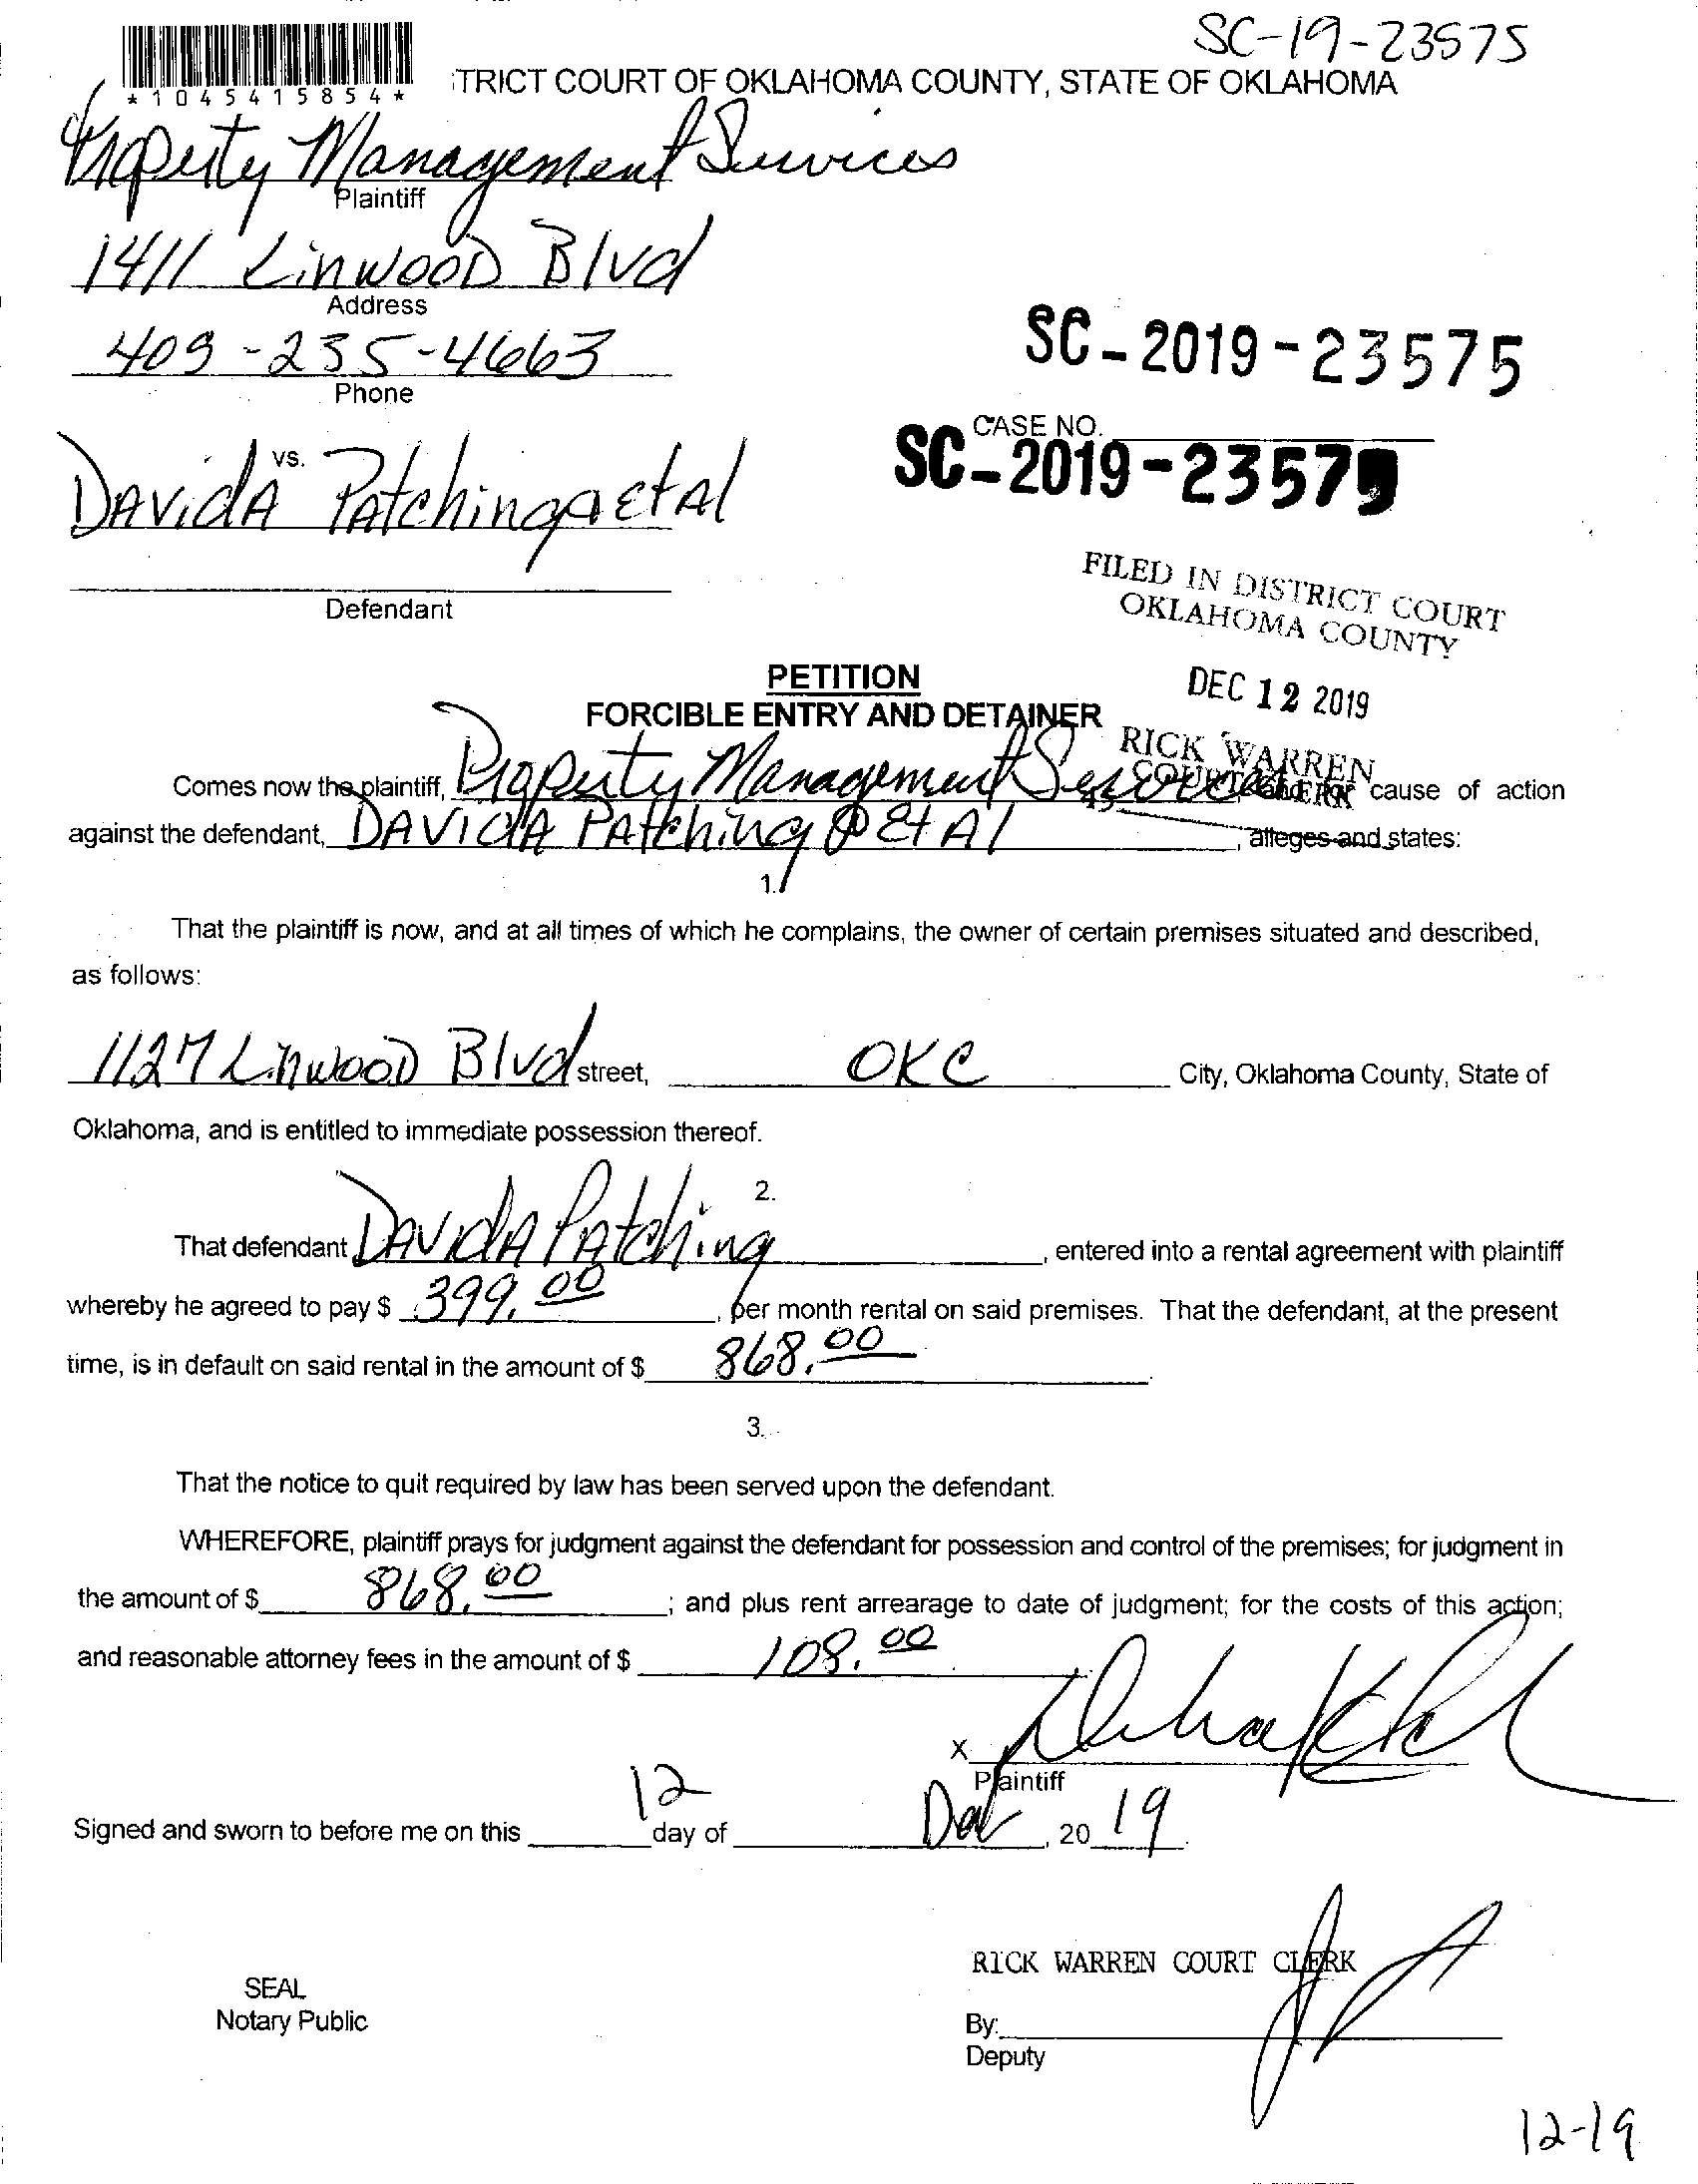 SC-19-23575
*1045415854*
TRICT COURT OF OKLAHOMA COUNTY, STATE OF OKLAHOMA
Property Management Services
Plaintiff
1411 Linwood Blvd
Address
409-235-4663
Phone
SC-2019-23575
CASE NO.
SC-2019-2357
vs.
DAVidA PAtching et Al
Defendant
FILED IN DISTRICT COURT
OKLAHOMA COUNTY
DEC 12 2019
RICK WARREN
COURT CLERK
PETITION
FORCIBLE ENTRY AND DETAINER
Comes now the plaintiff, Property Management Services, and for cause of action
against the defendant, DAVidA PAtching et Al, alleges and states:
1.
That the plaintiff is now, and at all times of which he complains, the owner of certain premises situated and described,
as follows:
1127 Linwood Blvd street, OKC City, Oklahoma County, State of
Oklahoma, and is entitled to immediate possession thereof.
2.
That defendant DAVidA PAtching, entered into a rental agreement with plaintiff
whereby he agreed to pay $ 399.00, per month rental on said premises. That the defendant, at the present
time, is in default on said rental in the amount of $ 868.00.
3.
That the notice to quit required by law has been served upon the defendant.
WHEREFORE, plaintiff prays for judgment against the defendant for possession and control of the premises; for judgment in
the amount of $ 868.00; and plus rent arrearage to date of judgment; for the costs of this action;
and reasonable attorney fees in the amount of $ 108.00
X
Plaintiff
Signed and sworn to before me on this 12 day of Dec, 20 19.
RICK WARREN COURT CLERK
SEAL
Notary Public
By:
Deputy
12-19